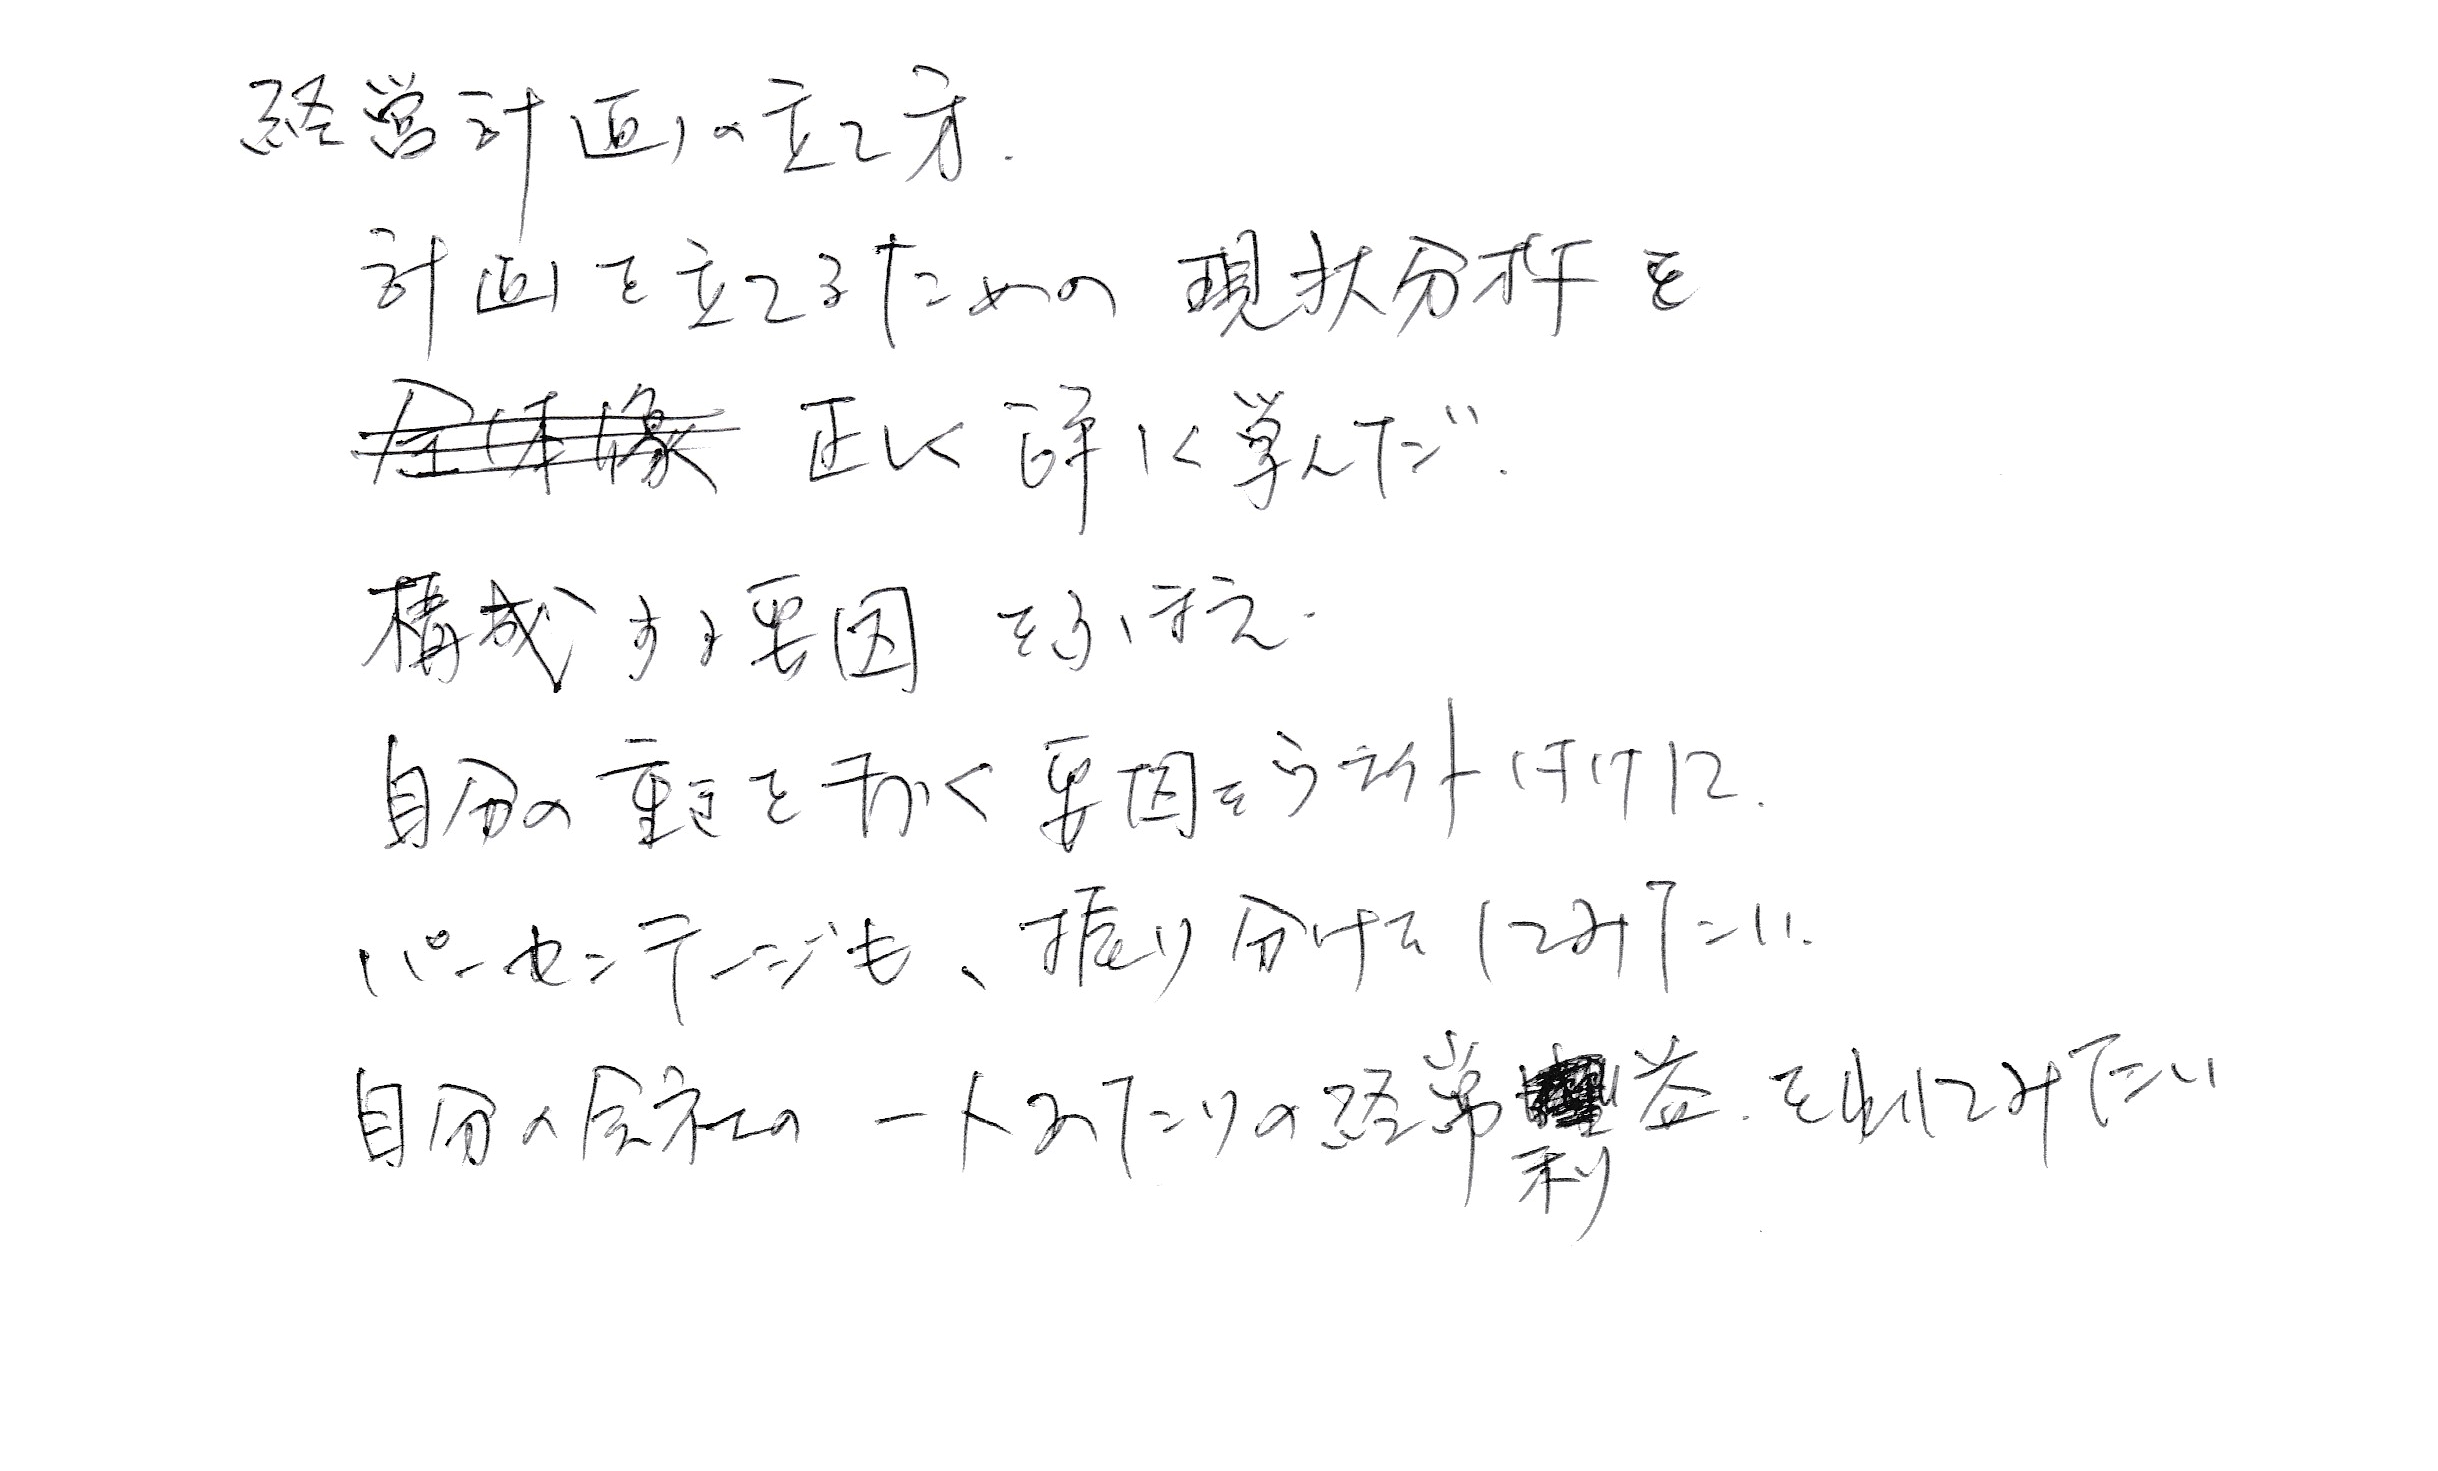 経営計画の立て方.
計画を立てるための 現状分析を
正しく 詳しく学んだ.
構成する要因 をふまえ.
自分の重きをおく要因をウエイト付けして.
パーセンテージも、振り分けてしてみたい.
自分の会社の 一人あたりの経常利益.を出してみたい